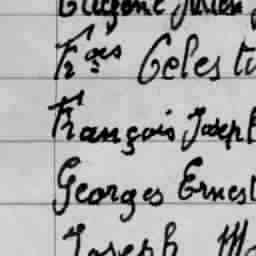 Eugène Julien
Fr.çois Celest
François Joseph
Georges Ernest
Joseph Ma